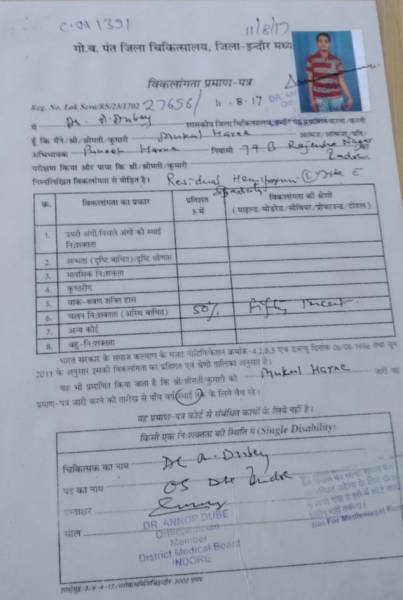 C.M 1391
11/8/17
गो.ब. पंत जिला चिकित्सालय, जिला-इन्दौर मध्य
विकलांगता प्रमाण-पत्र
Reg. No. Lok Seva/RS/23/1702 27656/ 11.8.17
मैं Dr. A. Dubey शासकीय जिला चिकित्सालय, इन्दौर
हूँ कि मैंने/श्री/श्रीमती/कुमारी Mukul Harne आत्मज/आत्मजा/पति/
अभिभावक Puneet Harne निवासी 77 B Rajendra Nagar Indore
परीक्षण किया और पाया कि श्री/श्रीमती/कुमारी
निम्नलिखित विकलांगता से पीड़ित है। Residual Hemiparesis (L) Side
क्र. विकलांगता का प्रकार प्रतिशत % में विकलांगता की श्रेणी
1. उपरी अंगों/निचले अंगों की स्थाई निःशक्तता
2. अन्धता (दृष्टि बाधित)/दृष्टि क्षीणता
3. मानसिक निःशक्तता
4. कुष्ठरोग
5. वाक-श्रवण शक्ति ह्रास
6. चलन निःशक्तता (अस्थि बाधित) 50% Fifty percent
7. अन्य कोई
8. बहु-निःशक्तता
भारत सरकार के समाज कल्याण के गजट नोटिफिकेशन क्रमांक-4.2.8.5 एवं
2011 के अनुसार इसकी विकलांगता का प्रतिशत एवं श्रेणी तालिका अनुसार है।
यह भी प्रमाणित किया जाता है कि श्री/श्रीमती/कुमारी को Mukul Harne जारी
प्रमाण-पत्र जारी करने की तारीख से पाँच वर्ष/स्थाई तक के लिये वैध रहे।
यह प्रमाण-पत्र कोर्ट से संबंधित कार्यों के लिये नहीं है।
किसी एक निःशक्तता की स्थिति में (Single Disability)
चिकित्सक का नाम Dr A. Dubey
पद का नाम OS DH Indore
हस्ताक्षर
सील
DR. ANNOP DUBE
Member
District Medical Board
INDORE
Not For Medicolegal